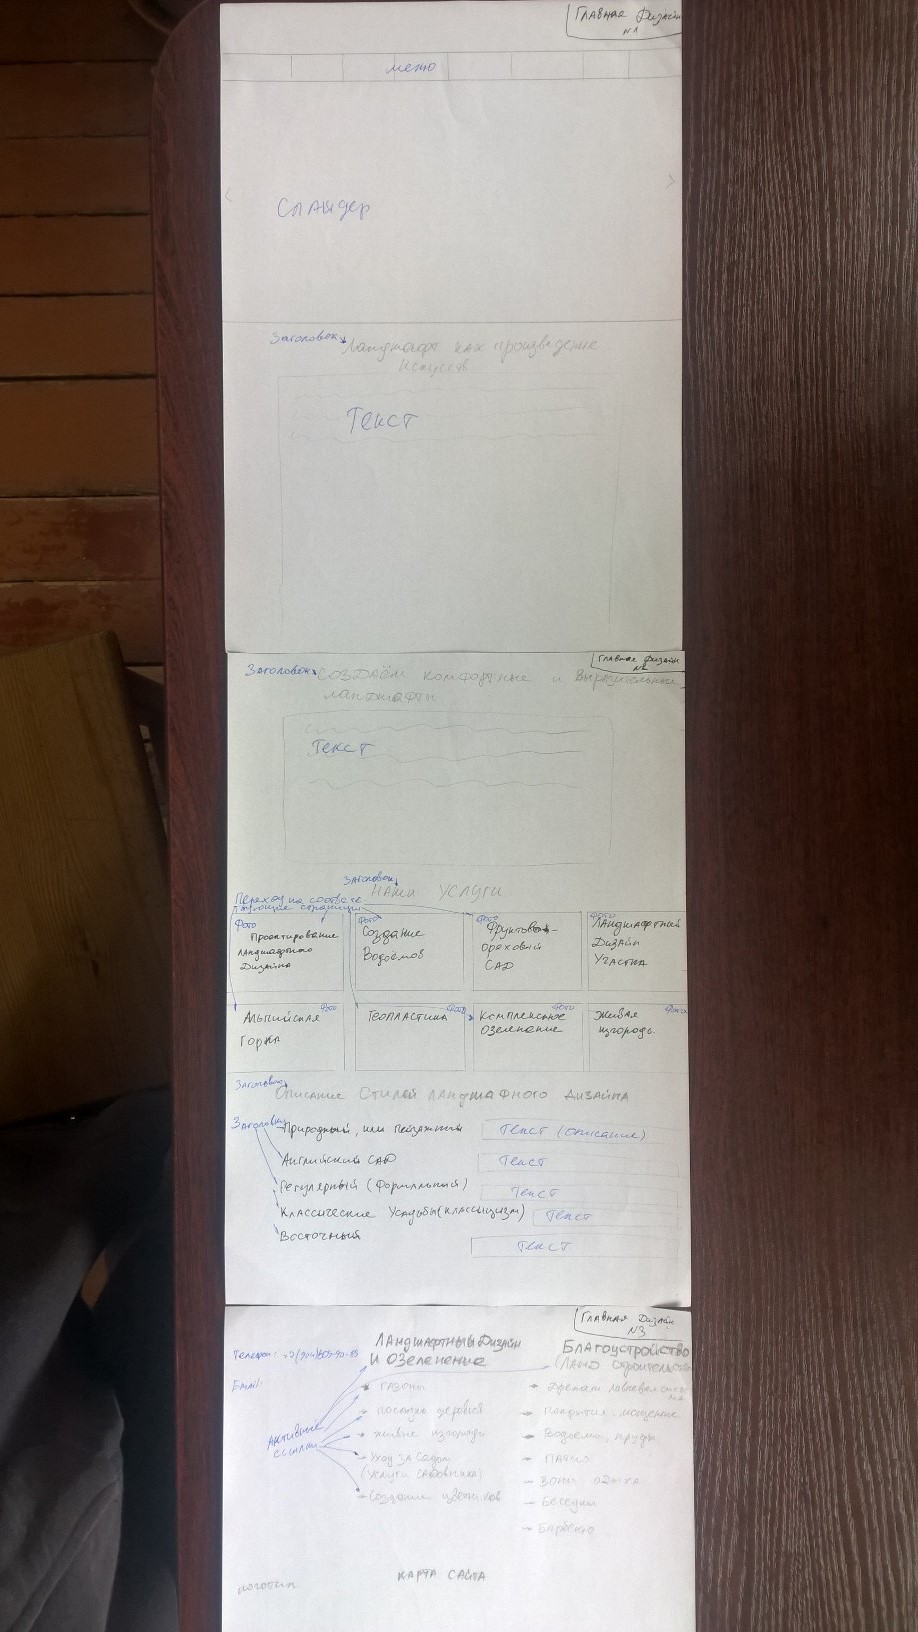 Главная Дизайн
№1
меню
Слайдер
Заголовок
Ландшафт как произведение
Искусств
Текст
Главная Дизайн
Заголовок
СОЗДАЁМ комфортные и Выразительные
ландшафты
Текст
Заголовок
НАШИ УСЛУГИ
Переход на соответс
твующие страницы
Фото
Проектирование
Ландшафтного
Дизайна
Фото
Создание
Водоёмов
Фото
Фруктовый-
ореховый
САД
Фото
Ландшафтный
Дизайн
Участка
Альпийская
Горка
Фото
Геопластика
Фото
Комплексное
Озеленение
Фото
Живая
изгородь.
Фото
Заголовок
Описание Стилей Ландшафтного Дизайна
Заголовки
Природный, или пейзажный
Текст (описание)
Английский САД
Текст
Регулярный (Формальный)
Текст
Классические Усадьбы (классицизм)
Текст
Восточный
Текст
Главная Дизайн
№3
Телефон:
Email:
Ландшафтный Дизайн
И ОЗЕЛЕНЕНИЕ
Активные
ссылки
газоны
посадка деревьев
живые изгороди
Уход за садом
(услуги садовника)
Создание цветников
БЛАГОУСТРОЙСТВО
Дренаж ливневая
Покрытия. мощение
Водоёмы, пруды
ПАТИО
Зоны отдыха
Беседки
Барбекю
КАРТА САЙТА
логотип